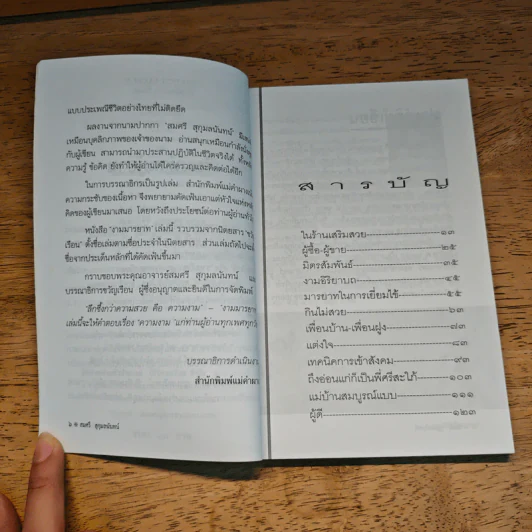 แบบประเพณีชีวิตอย่างไทยที่ไม่ติดยึด
ผลงานจากนามปากกา 'สมศรี สุกุมลนันทน์'
เหมือนบุคลิกภาพของเจ้าของนาม อ่านสนุกเหมือนกำลัง
กับผู้เขียน สามารถนำมาประสานปฏิบัติในชีวิตจริงได้
ความรู้ ข้อคิด ยังทำให้ผู้อ่านได้ใคร่ครวญและคิดต่อได้อีก
ในการบรรณาธิกรเป็นรูปเล่ม สำนักพิมพ์แม่คำผาง
ความกระชับของเนื้อหา จึงพยายามคัดเฟ้นเอาแต่หัวใจแห่ง
คิดของผู้เขียนมาเสนอ โดยหวังถึงประโยชน์ต่อท่านผู้อ่าน
หนังสือ 'งามมารยาท' เล่มนี้ รวบรวมจากนิตยสาร
เรือน' ตั้งชื่อเล่มตามชื่อประจำในนิตยสาร ส่วนเล่มถัดไป
ชื่อจากประเด็นหลักที่ได้คัดเฟ้นขึ้นมา
กราบขอบพระคุณอาจารย์สมศรี สุกุมลนันทน์
บรรณาธิการขวัญเรือน ผู้ซึ่งอนุญาตและยินดีในการจัดพิมพ์
'ลึกซึ้งกว่าความสวย คือ ความงาม' – 'งามมารยาท'
เล่มนี้จะให้คำตอบเรื่อง 'ความงาม' แก่ท่านผู้อ่านทุกเพศทุกวัย
บรรณาธิการดำเนินงาน
สำนักพิมพ์แม่คำผาง
๖ สมศรี สุกุมลนันทน์
สารบัญ
ในร้านเสริมสวย ๑๓
ผู้ซื้อ-ผู้ขาย ๒๕
มิตรสัมพันธ์ ๓๕
งามอิริยาบถ ๔๕
มารยาทในการเยี่ยมไข้ ๕๕
กินไม่สวย ๖๓
เพื่อนบ้าน-เพื่อนฝูง ๗๓
แต่งใจ ๘๓
เทคนิคการเข้าสังคม ๙๓
ถึงอ่อนแก่ก็เป็นพี่ศรีสะใภ้ ๑๐๓
แม่บ้านสมบูรณ์แบบ ๑๑๑
ผู้ดี ๑๒๓